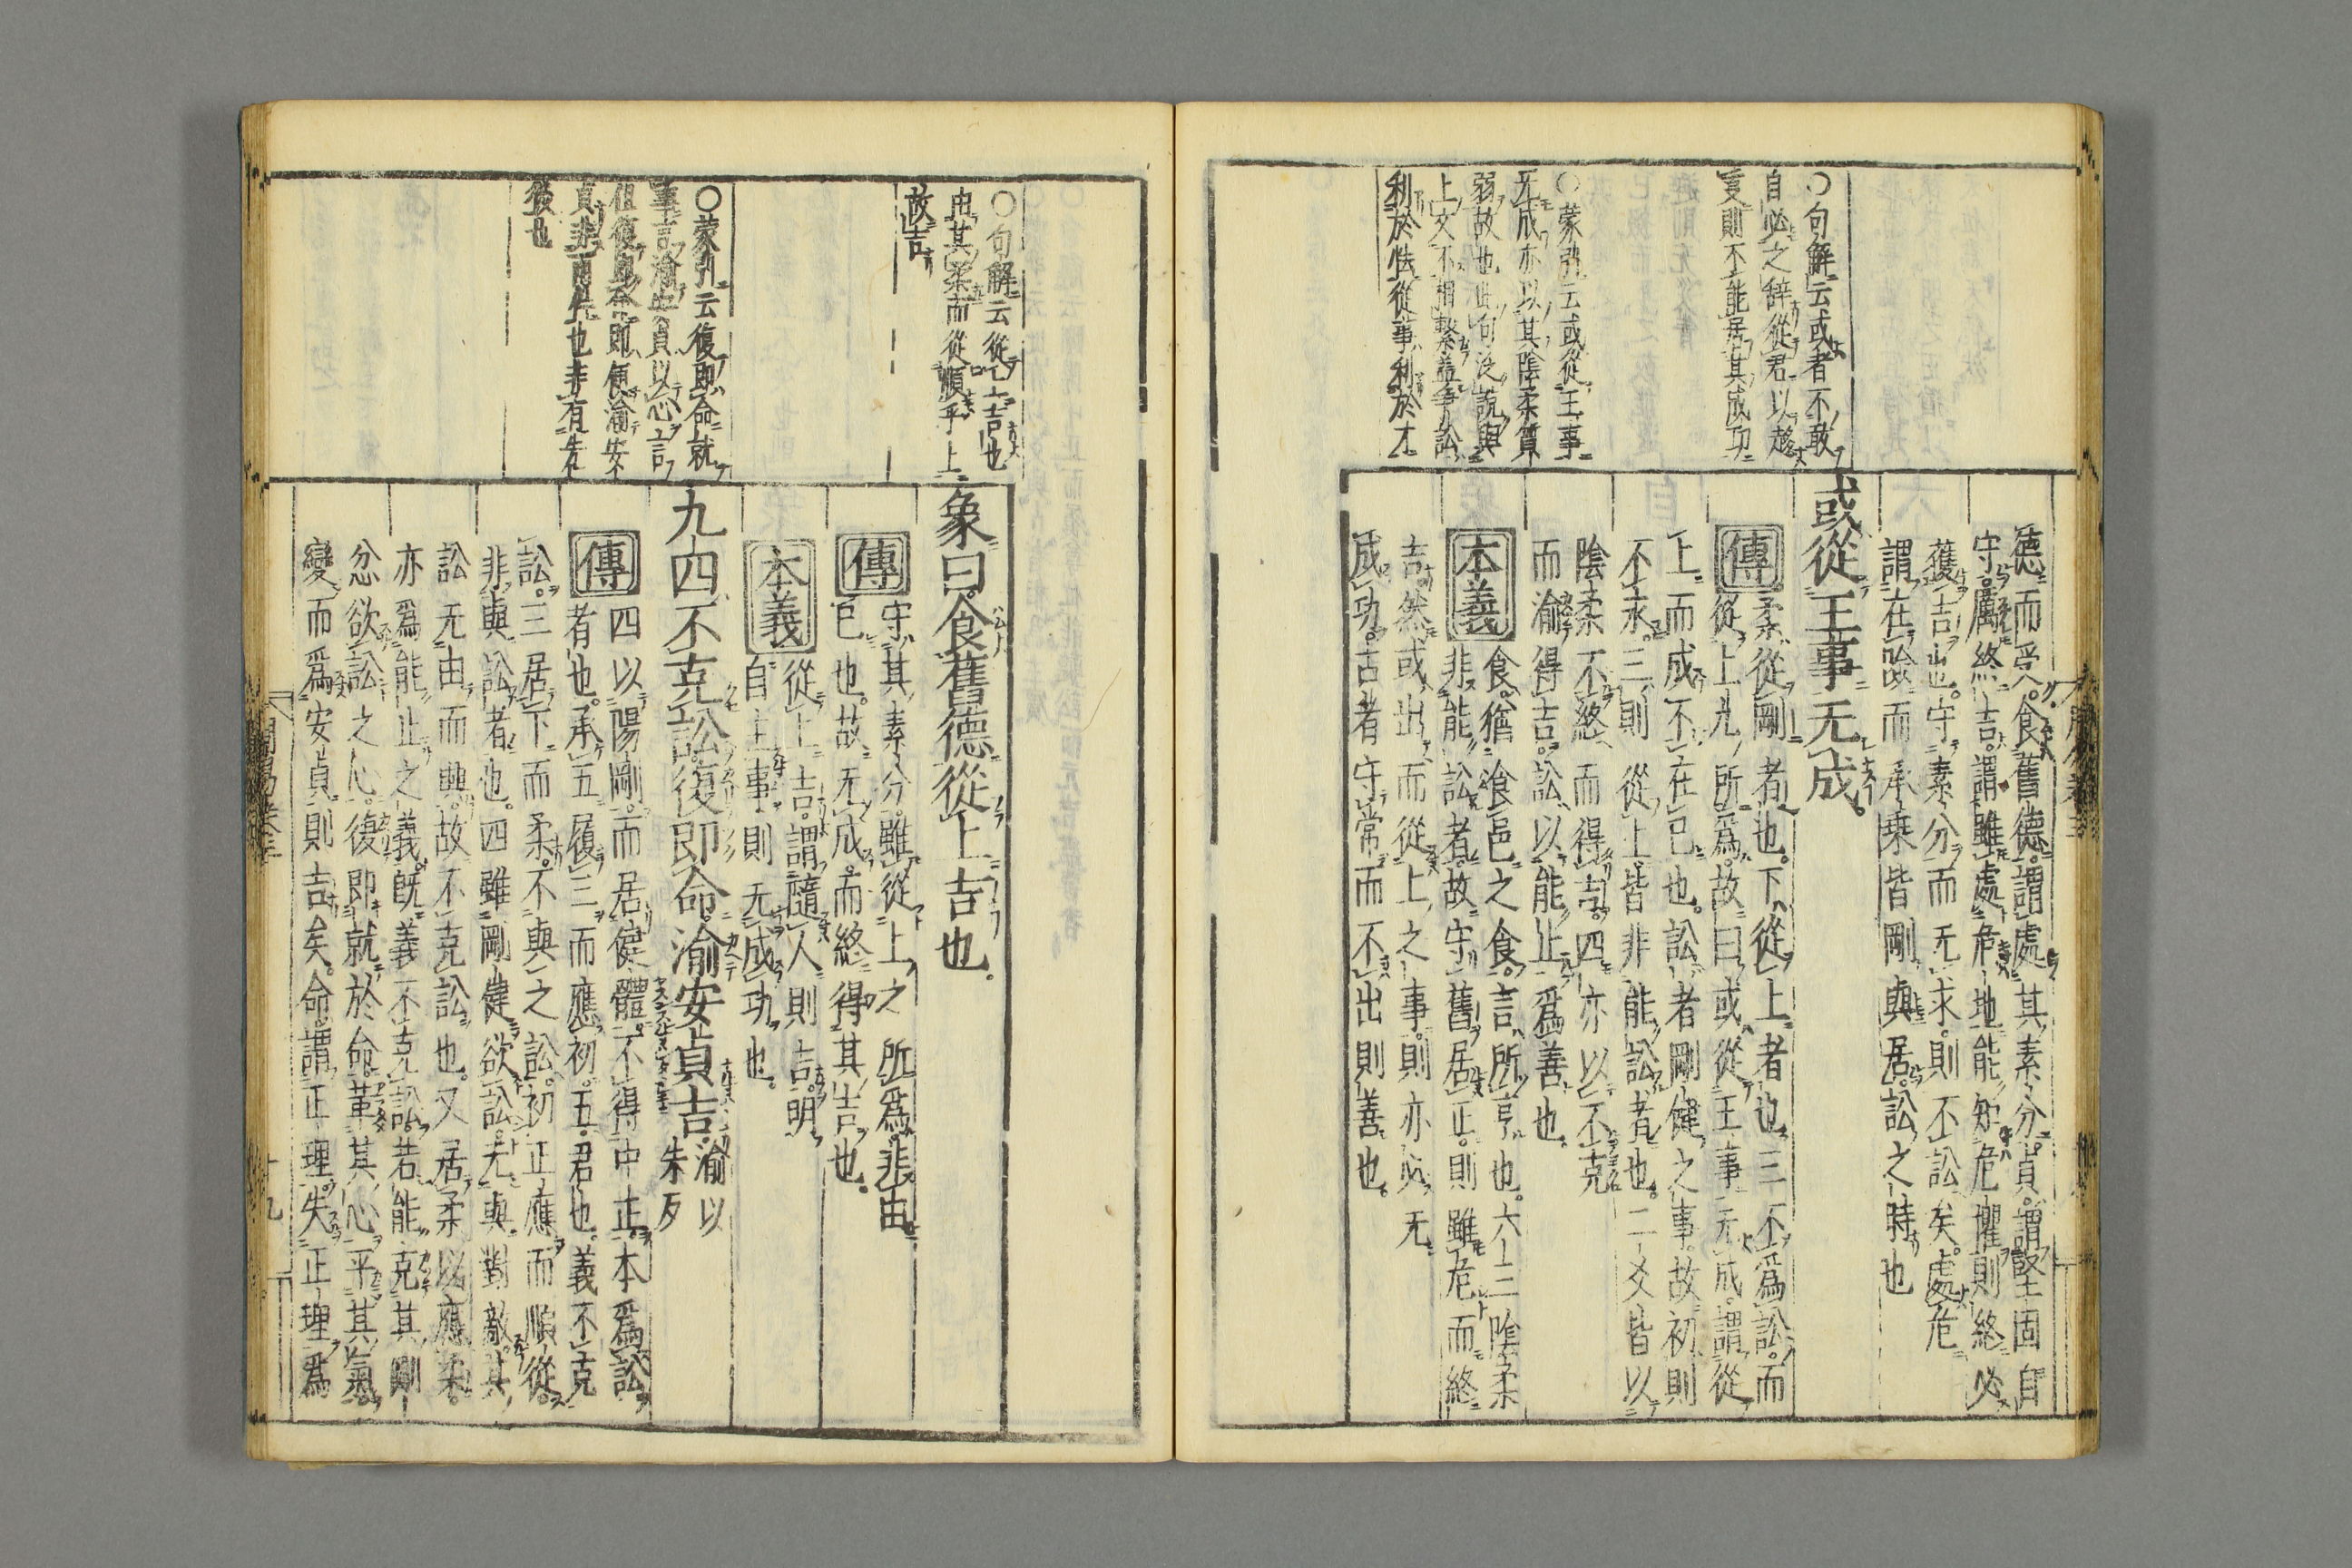 ○句解云或者不敢
自必之辞從君以趍
支則不能居其成功
○蒙引云或從王事
无成亦以其陰柔質
弱故也此句泛説與
上文不相繋蓋争訟
利於怯從事利於才
德而受食舊德謂處其素分貞謂堅固自
守厲終吉謂雖處危地能知危懼則終必
獲吉也守素分而无求則不訟矣處危
謂在險而承乗皆剛與居訟之時也
或從王事无成
傳
柔從剛者也下從上者也三不爲訟而
從上九所爲故曰或從王事无成謂從
上而成不在已也訟者剛健之事故初則
不永三則從上皆非能訟者也二爻皆以
陰柔不終而得吉四亦以不克
而渝得吉訟以能止爲善也
本義
食猶飡邑之食言所享也六三陰柔
非能訟者故守舊居正則雖危而終
吉然或出而從上之事則亦必无
成功古者守常而不出則善也
○句解云從上吉也
由其柔而從順乎上
故吉
○蒙引云復即命就
事言渝安貞以心言
但復即命即便渝安
貞非兩件也非有先
後也
象曰食舊德從上吉也
傳
守其素分雖從上之所爲非由
已也故无成而終得其吉也
本義
從上吉謂隨人則吉明
自主事則无成功也
九四不克訟復即命渝安貞吉
渝以
朱反
傳
四以陽剛而居健體不得中正本爲訟
者也承五履三而應初五君也義不克
訟三居下而柔不與之訟初正應而順從
非與訟者也四雖剛健欲訟无與對敵其
訟无由而興故不克訟也又居柔以應柔
亦爲能止之義旣義不克訟若能克其剛
忿欲訟之心復即就於命革其心平其氣
變而爲安貞則吉矣命謂正理失正理爲
十九